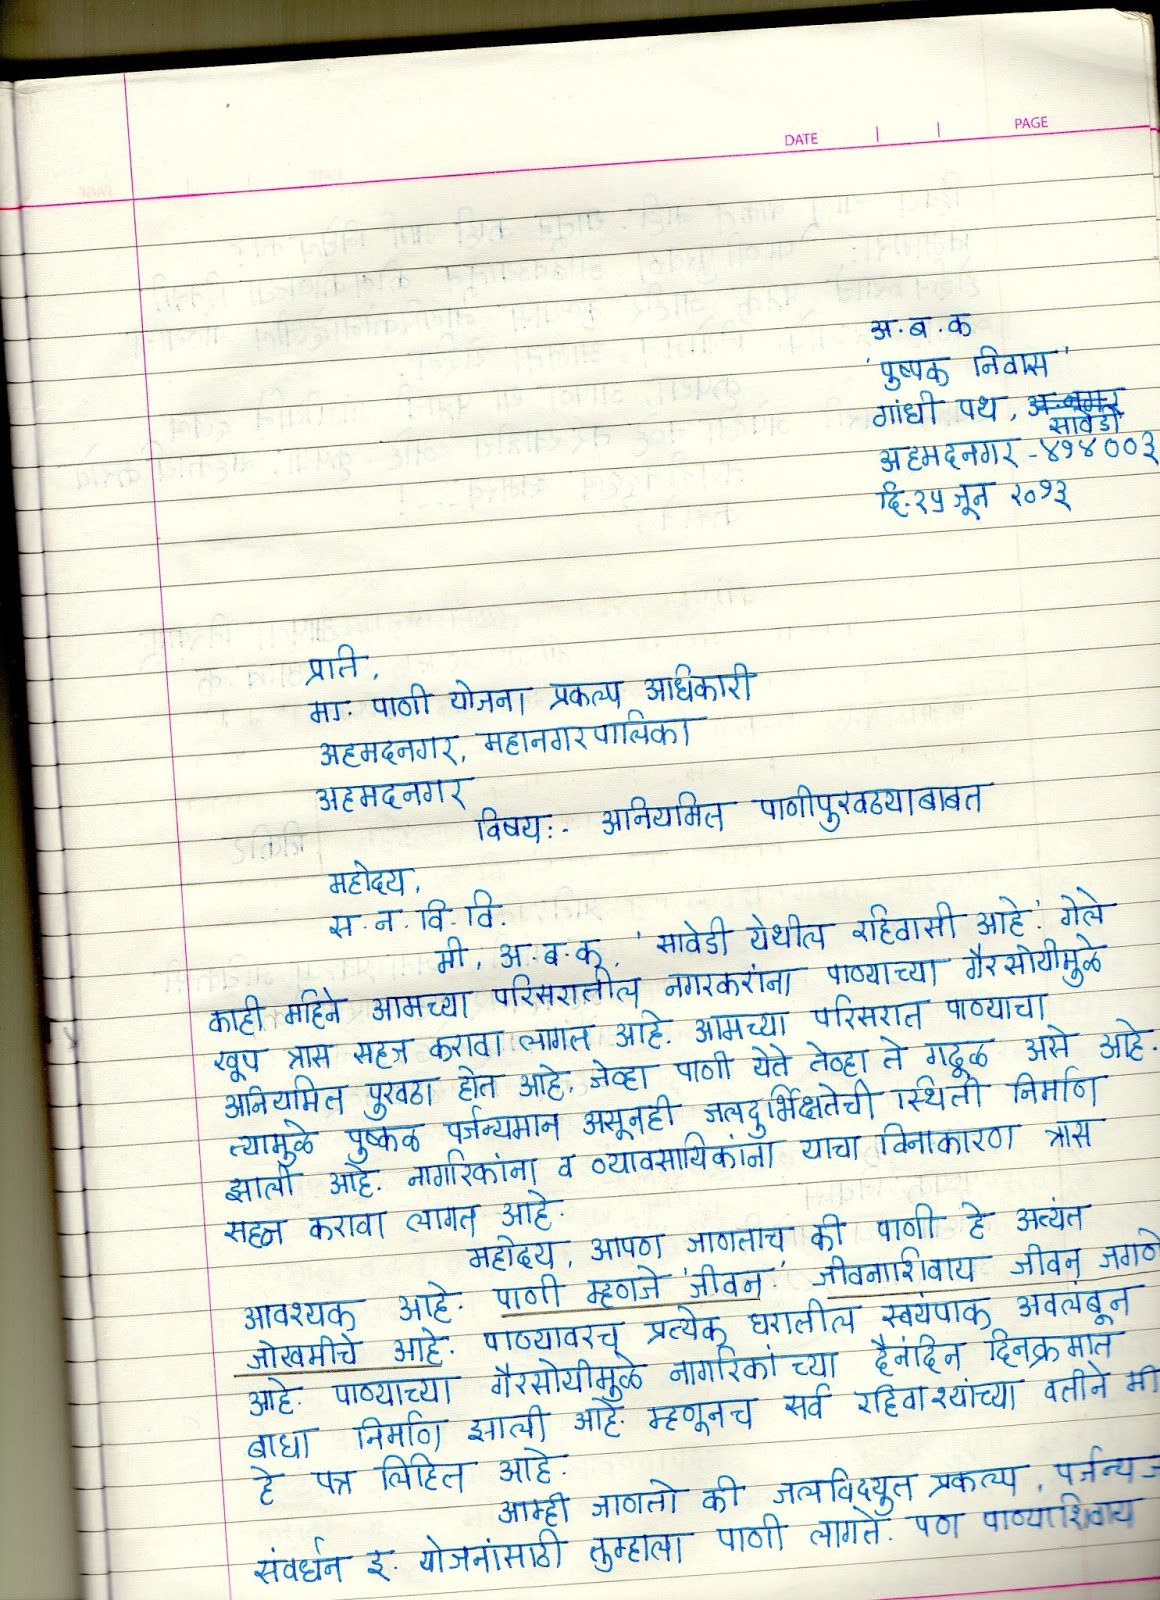 DATE
PAGE
अ.ब.क
'पुष्पक निवास'
गांधी पथ,
सावेडी
अहमदनगर -४१४००३
दि.२५ जून २०१३
प्रति,
मा. पाणी योजना प्रकल्प अधिकारी
अहमदनगर, महानगरपालिका
अहमदनगर
विषय:- अनियमित पाणीपुरवठ्याबाबत
महोदय,
स.न.वि.वि.
मी, अ.ब.क, 'सावेडी येथील रहिवासी आहे.' गेले
काही महिने आमच्या परिसरातील नगरकरांना पाण्याच्या गैरसोयीमुळे
खूप त्रास सहन करावा लागत आहे. आमच्या परिसरात पाण्याचा
अनियमित पुरवठा होत आहे. जेव्हा पाणी येते तेव्हा ते गढूळ असे आहे.
त्यामुळे पुष्कळ पर्जन्यमान असूनही जलदुर्भिक्षतेची स्थिती निर्माण
झाली आहे. नागरिकांना व व्यावसायिकांना याचा विनाकारण त्रास
सहन करावा लागत आहे.
महोदय, आपण जाणताच की पाणी हे अत्यंत
आवश्यक आहे. पाणी म्हणजे 'जीवन.' जीवनाशिवाय जीवन जगणे
जोखमीचे आहे. पाण्यावरच प्रत्येक घरातील स्वयंपाक अवलंबून
आहे. पाण्याच्या गैरसोयीमुळे नागरिकांच्या दैनंदिन दिनक्रमात
बाधा निर्माण झाली आहे. म्हणूनच सर्व रहिवाश्यांच्या वतीने मी
हे पत्र लिहित आहे.
आम्ही जाणतो की जलविद्युत प्रकल्प, पर्जन्य
संवर्धन इ. योजनांसाठी तुम्हाला पाणी लागते. पण पाण्याशिवाय